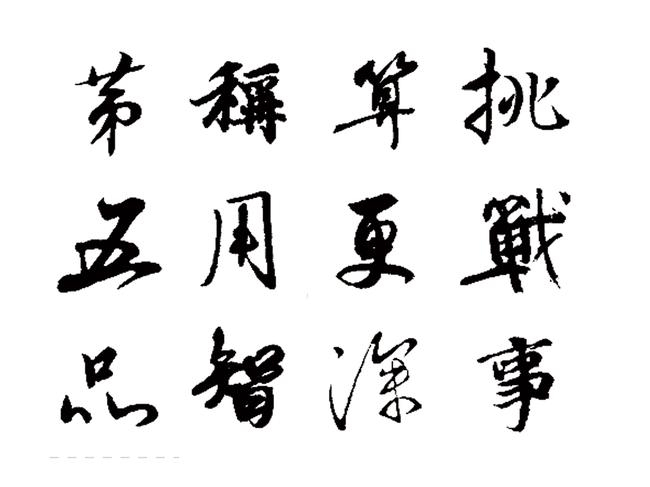 第五品
稱用智
算更深
挑戰事